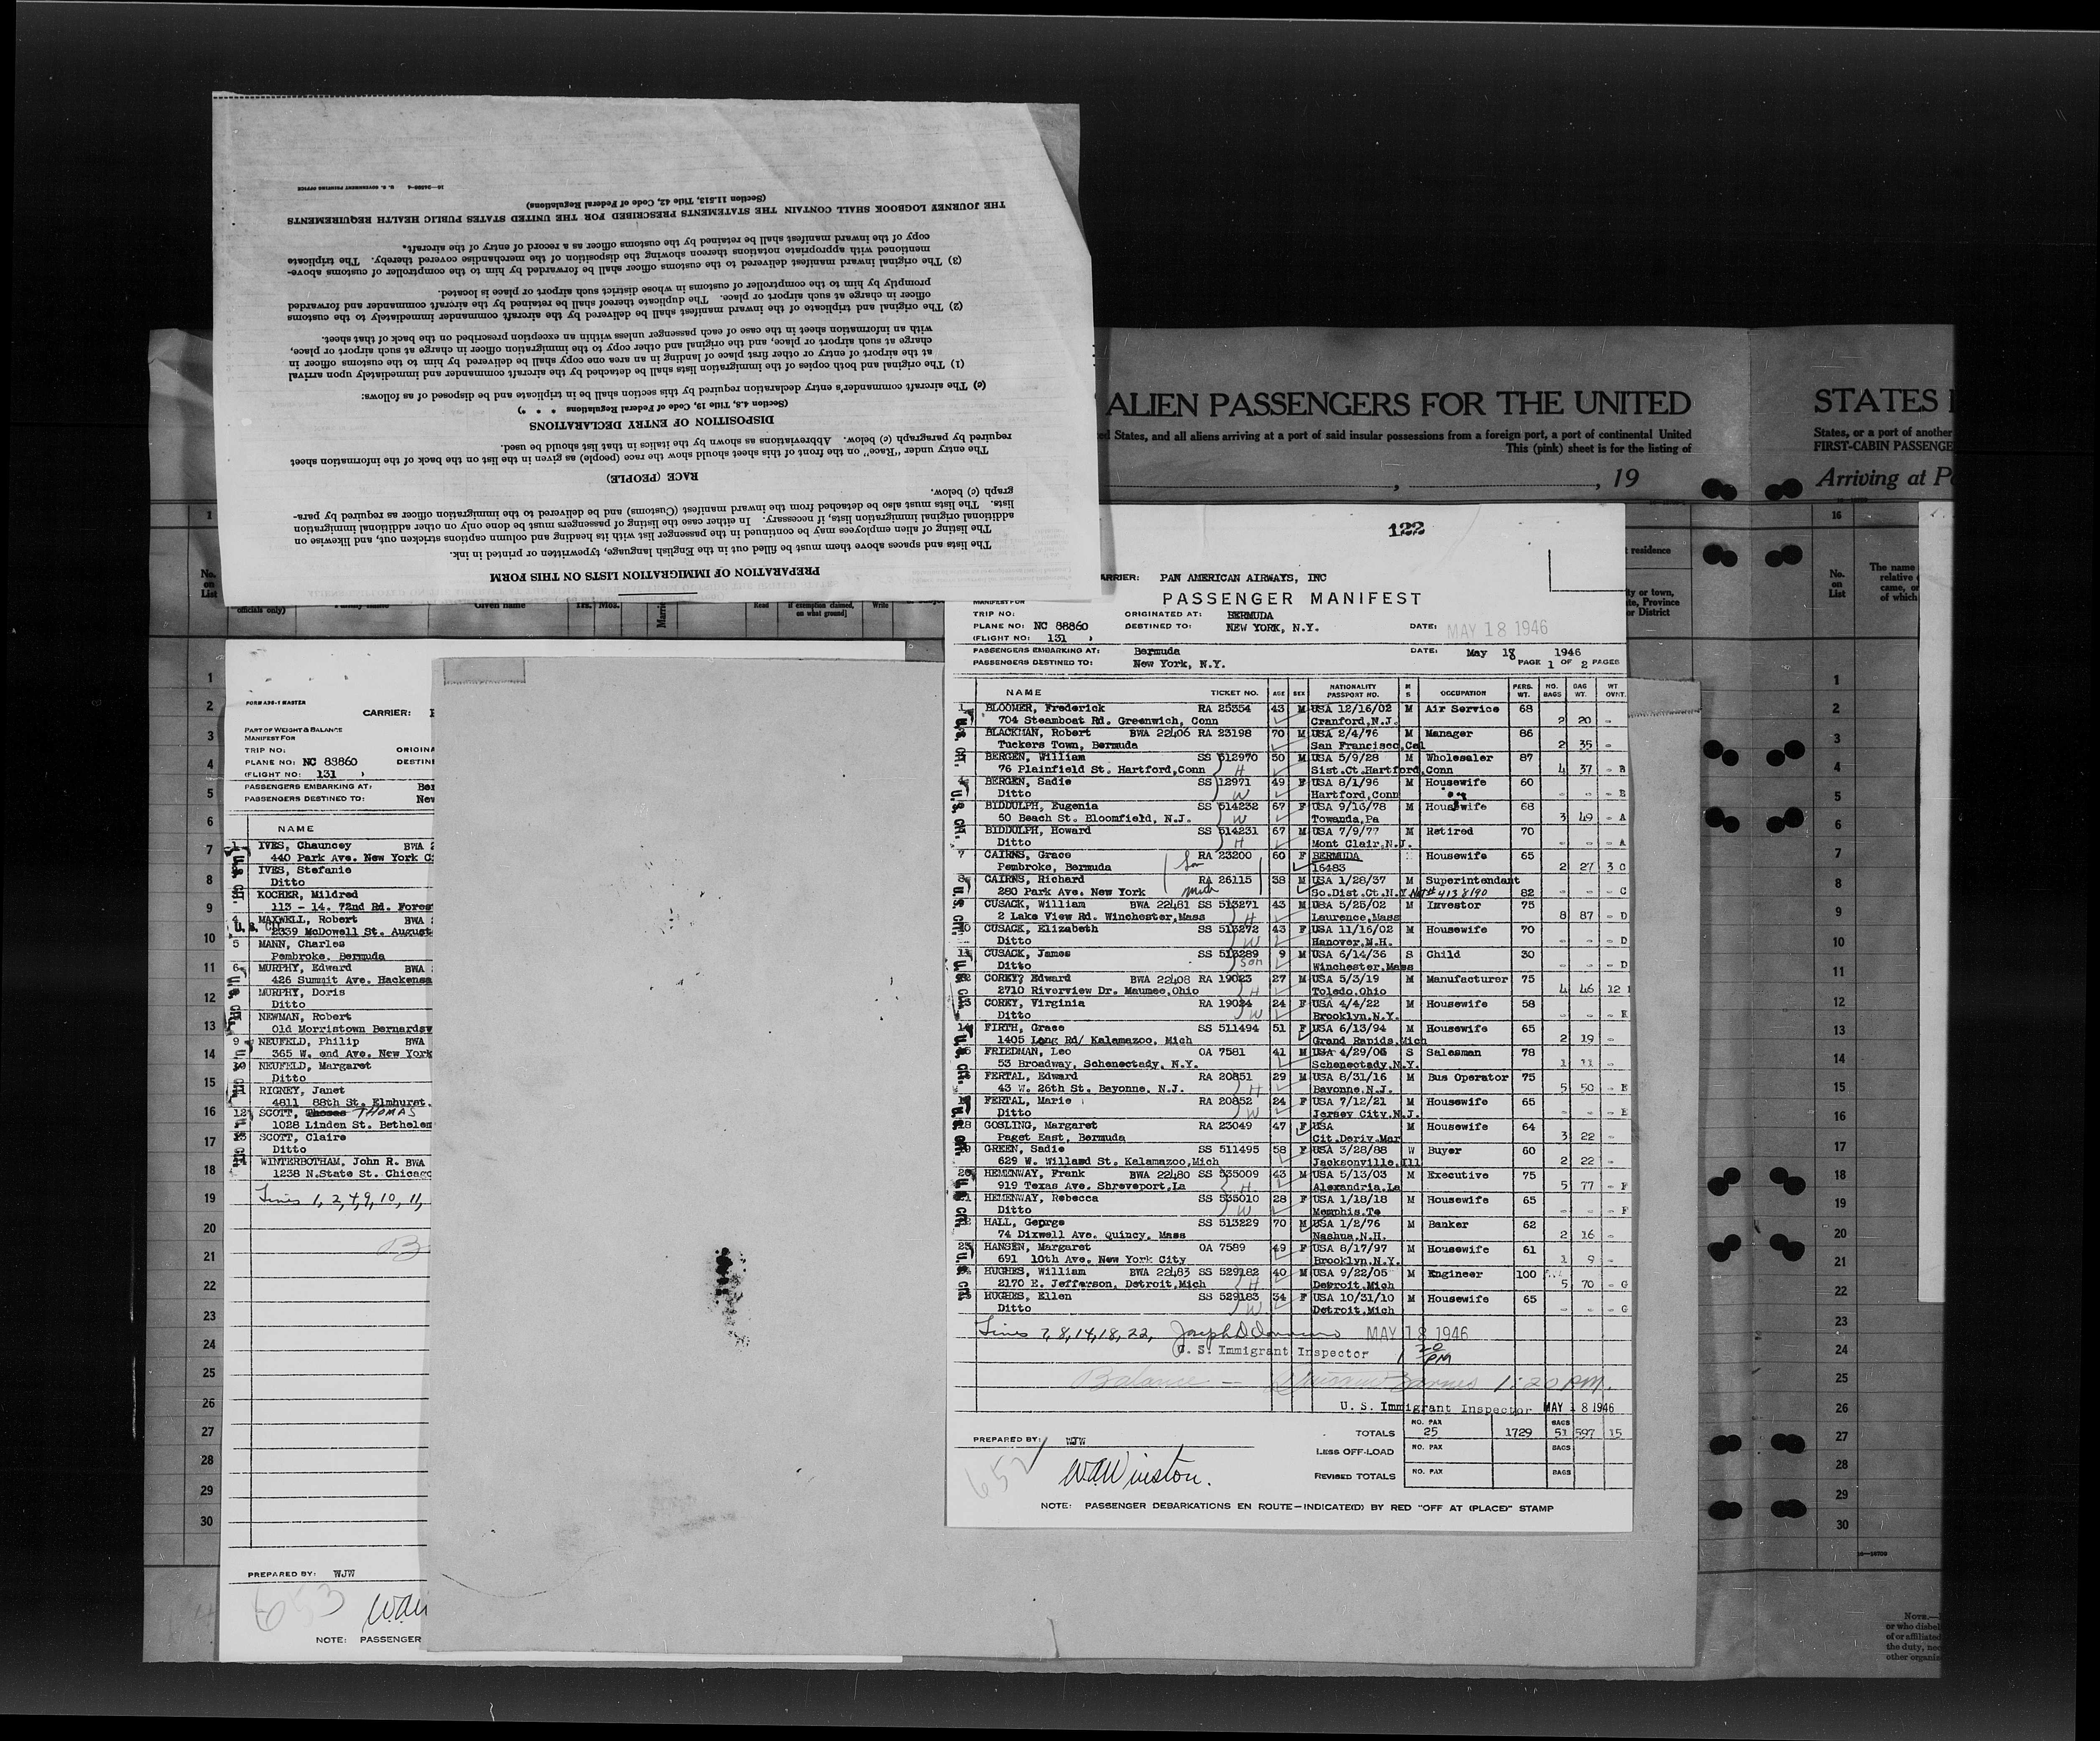 PREPARATION OF IMMIGRATION LISTS ON THIS FORM
The lists and spaces above them must be filled out in the English language, typewritten or printed in ink.
The listing of alien employees may be continued in the passenger list with its heading and column captions stricken out, and likewise on
additional original immigration lists, if necessary. In either case the listing of passengers must be done only on other additional immigration
lists. The lists must also be detached from the inward manifest (Customs) and be delivered to the immigration officer as required by para-
graph (c) below.
RACE (PEOPLE)
The entry under "Race" on the front of this sheet should show the race (people) as given in the list on the back of the information sheet
required by paragraph (c) below. Abbreviations as shown by the italics in that list should be used.
DISPOSITION OF ENTRY DECLARATIONS
(Section 4.8, Title 19, Code of Federal Regulations * * *)
(c) The aircraft commander's entry declaration required by this section shall be in triplicate and be disposed of as follows:
(1) The original and both copies of the immigration lists shall be detached by the aircraft commander and immediately upon arrival
at the airport of entry or other first place of landing in an area one copy shall be delivered by him to the customs officer in
charge at such airport or place, and the original and other copy to the immigration officer in charge at such airport or place,
with an information sheet in the case of each passenger unless within an exception prescribed on the back of that sheet.
(2) The original and triplicate of the inward manifest shall be delivered by the aircraft commander immediately to the customs
officer in charge at such airport or place. The duplicate thereof shall be retained by the aircraft commander and forwarded
promptly by him to the comptroller of customs in whose district such airport or place is located.
(3) The original inward manifest delivered to the customs officer shall be forwarded by him to the comptroller of customs above-
mentioned with appropriate notations thereon showing the disposition of the merchandise covered thereby. The triplicate
copy of the inward manifest shall be retained by the customs officer as a record of entry of the aircraft.
THE JOURNEY LOGBOOK SHALL CONTAIN THE STATEMENTS PRESCRIBED FOR THE UNITED STATES PUBLIC HEALTH REQUIREMENTS
(Section 11.513, Title 42, Code of Federal Regulations)
U. S. GOVERNMENT PRINTING OFFICE
ALIEN PASSENGERS FOR THE UNITED
States, and all aliens arriving at a port of said insular possessions from a foreign port, a port of continental United
This (pink) sheet is for the listing of
, 19
STATES
States, or a port of another
FIRST-CABIN PASSENGE
Arriving at P
No. on List
Given name
Read
Write
residence
ity or town,
te, Province
or District
16
No. on List
The name
relative
came, or
of which
1
2
3
4
5
6
7
8
9
10
11
12
13
14
15
16
17
18
19
20
21
22
23
24
25
26
27
28
29
30
FORM A36-1 MASTER
CARRIER:
PART OF WEIGHT & BALANCE
MANIFEST FOR
TRIP NO: ORIGINA
PLANE NO: NC 88860 DESTIN
(FLIGHT NO: 131 )
PASSENGERS EMBARKING AT: Ber
PASSENGERS DESTINED TO: New
NAME
IVES, Chauncey BWA
440 Park Ave. New York C
IVES, Stefanie
Ditto
KOCHER, Mildred
113 - 14. 72nd Rd. Fores
MAXWELL, Robert BWA
2339 McDowell St. August
5 MANN, Charles
Pembroke, Bermuda
6 MURPHY, Edward BWA
426 Summit Ave. Hackensa
MURPHY, Doris
Ditto
NEWMAN, Robert
Old Morristown Bernardsv
9 NEUFELD, Philip BWA
365 W. end Ave. New York
10 NEUFELD, Margaret
Ditto
RIGNEY, Janet
4811 88th St. Elmhurst.
12 SCOTT, Thomas THOMAS
1028 Linden St. Bethelem
13 SCOTT, Claire
Ditto
WINTERBOTHAM, John R. BWA
1238 N.State St. Chicago
Lines 1, 2, 4, 9, 10, 11,
PREPARED BY: WJW
653
NOTE: PASSENGER
122
CARRIER: PAN AMERICAN AIRWAYS, INC
PASSENGER MANIFEST
MANIFEST FOR
TRIP NO: ORIGINATED AT: BERMUDA
PLANE NO: NC 88860 DESTINED TO: NEW YORK, N.Y. DATE: MAY 18 1946
(FLIGHT NO: 131 )
PASSENGERS EMBARKING AT: Bermuda DATE: May 18 1946
PASSENGERS DESTINED TO: New York, N.Y. PAGE 1 OF 2 PAGES
NAME TICKET NO. AGE SEX NATIONALITY PASSPORT NO. M S OCCUPATION PERS. WT. NO. BAGS BAG WT. WT OVNT.
1 BLOOMER, Frederick RA 25354 43 M USA 12/16/02 M Air Service 68
704 Steamboat Rd. Greenwich, Conn Cranford,N.J. 2 20 -
BLACKMAN, Robert BWA 22406 RA 23198 70 M USA 2/4/76 M Manager 86
Tuckers Town, Bermuda San Francisco,Cal 2 35 -
BERGEN, William SS 512970 50 M USA 5/9/28 M Wholesaler 87
76 Plainfield St. Hartford,Conn H Sist.Ct.Hartford,Conn 4 37 - B
BERGEN, Sadie SS 12971 49 F USA 8/1/96 M Housewife 60
Ditto W Hartford,Conn - - - B
BIDDULPH, Eugenia SS 514232 67 F USA 9/16/78 M Housewife 68
50 Beach St. Bloomfield, N.J. W Towanda,Pa 3 49 - A
BIDDULPH, Howard SS 514231 67 M USA 7/9/77 M Retired 70
Ditto H Mont Clair,N.J. - - - A
7 CAIRNS, Grace RA 23200 60 F BERMUDA Housewife 65
Pembroke, Bermuda 16483 2 27 3 C
8 CAIRNS, Richard RA 26115 38 M USA 1/28/37 M Superintendant
280 Park Ave. New York So.Dist.Ct.N.Y. Nat# 4138190 82 - - - C
CUSACK, William BWA 22481 SS 513271 43 M USA 5/25/02 M Investor 75
2 Lake View Rd. Winchester,Mass H Laurence,Mass 8 87 - D
10 CUSACK, Elizabeth SS 513272 43 F USA 11/16/02 M Housewife 70
Ditto W Hanover,N.H. - - - D
11 CUSACK, James SS 513289 9 M USA 6/14/36 S Child 30
Ditto Son Winchester,Mass - - - D
COREY, Edward BWA 22408 RA 19023 27 M USA 5/3/19 M Manufacturer 75
2710 Riverview Dr. Maumee,Ohio H Toledo,Ohio 4 46 12
COREY, Virginia RA 19024 24 F USA 4/4/22 M Housewife 58
Ditto W Brooklyn,N.Y. - - - E
14 FIRTH, Grace SS 511494 51 F USA 6/13/94 M Housewife 65
1405 Long Rd/ Kalamazoo, Mich Grand Rapids,Mich 2 19 -
FRIEDMAN, Leo OA 7581 41 M USA 4/29/06 S Salesman 78
53 Broadway, Schenectady, N.Y. Schenectady,N.Y. 1 11 -
FERTAL, Edward RA 20851 29 M USA 8/31/16 M Bus Operator 75
43 W. 26th St. Bayonne, N.J. H Bayonne,N.J. 5 50 - E
FERTAL, Marie RA 20852 24 F USA 7/12/21 M Housewife 65
Ditto W Jersey City,N.J. - - - E
18 GOSLING, Margaret RA 23049 47 F USA M Housewife 64
Paget East, Bermuda Cit.Deriv.Mar 3 22 -
GREEN, Sadie SS 511495 58 F USA 3/28/88 W Buyer 60
629 W. Willard St. Kalamazoo,Mich Jacksonville,Ill 2 22 -
20 HEMENWAY, Frank BWA 22480 SS 535009 43 M USA 5/13/03 M Executive 75
919 Texas Ave. Shreveport,La H Alexandria,La 5 77 - F
HEMENWAY, Rebecca SS 535010 28 F USA 1/18/18 M Housewife 65
Ditto W Memphis,Te - - - F
HALL, George SS 513229 70 M USA 1/2/76 M Banker 62
74 Dixwell Ave. Quincy, Mass Nashua,N.H. 2 16 -
23 HANSEN, Margaret OA 7589 49 F USA 8/17/97 M Housewife 61
691 10th Ave. New York City Brooklyn,N.Y. 1 9 -
HUGHES, William BWA 22483 SS 529182 40 M USA 9/22/05 M Engineer 100
2170 E. Jefferson, Detroit,Mich H Detroit,Mich 5 70 - G
HUGHES, Ellen SS 529183 34 F USA 10/31/10 M Housewife 65
Ditto W Detroit,Mich - - - G
Lines 7, 8, 14, 18, 22, MAY 18 1946
U. S. Immigrant Inspector 1 20 PM
Balance — 1:20 P.M.
U. S. Immigrant Inspector MAY 18 1946
TOTALS NO. PAX 25 1729 BAGS 51 597 15
PREPARED BY: WJW
LESS OFF-LOAD NO. PAX BAGS
REVISED TOTALS NO. PAX BAGS
652
W.J. Winston.
NOTE: PASSENGER DEBARKATIONS EN ROUTE—INDICATE(D) BY RED "OFF AT (PLACE)" STAMP
1
2
3
4
5
6
7
8
9
10
11
12
13
14
15
16
17
18
19
20
21
22
23
24
25
26
27
28
29
30
NOTE.—
or who disbel
of or affiliated
the duty, nec
other organiz